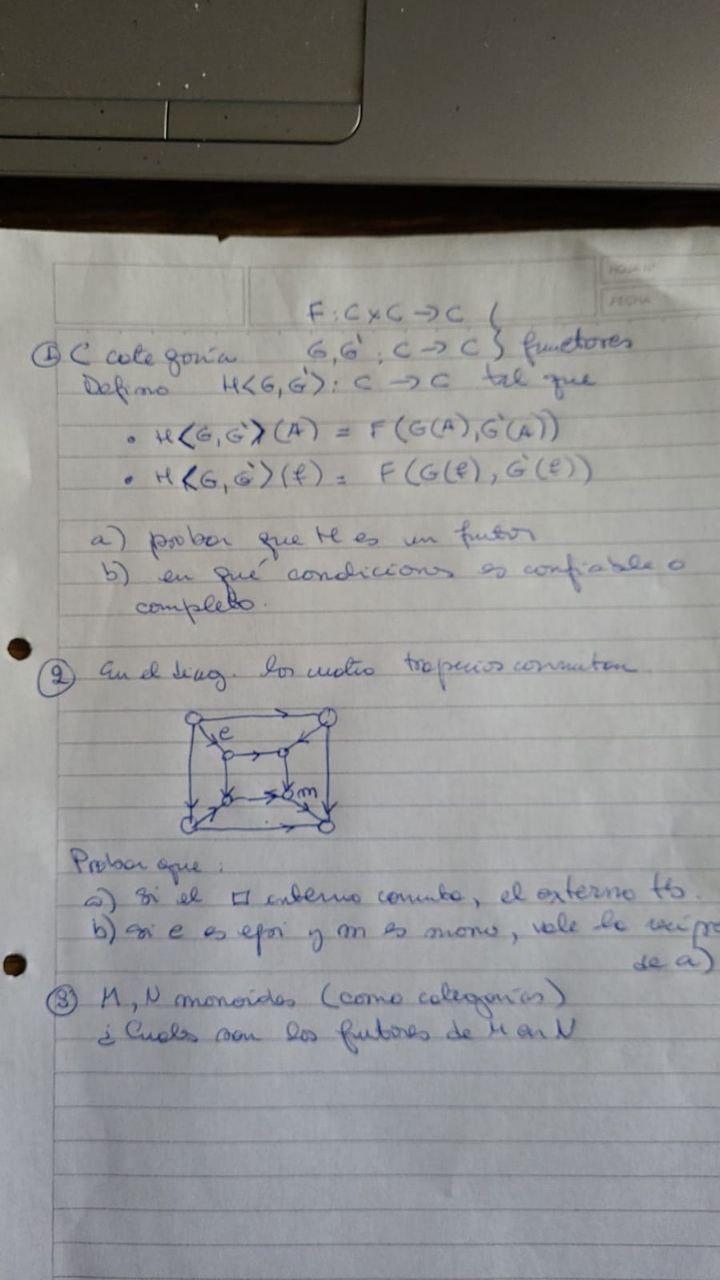 HOJA Nº
FECHA
F : C x C → C
① C categoría G, G' : C → C } functores
Defino H<G, G'> : C → C tal que
• H<G, G'>(A) = F(G(A), G'(A))
• H<G, G'>(f) = F(G(f), G'(f))
a) probar que H es un funtor
b) en qué condiciones es confiable o
completo.
② En el diag. los cuatro trapecios conmutan
e
m
Probar que :
a) si el □ interno conmuta, el externo tb.
b) si e es epi y m es mono, vale la recípr
de a)
③ M, N monoides (como categorías)
¿ Cuales son los funtores de M en N